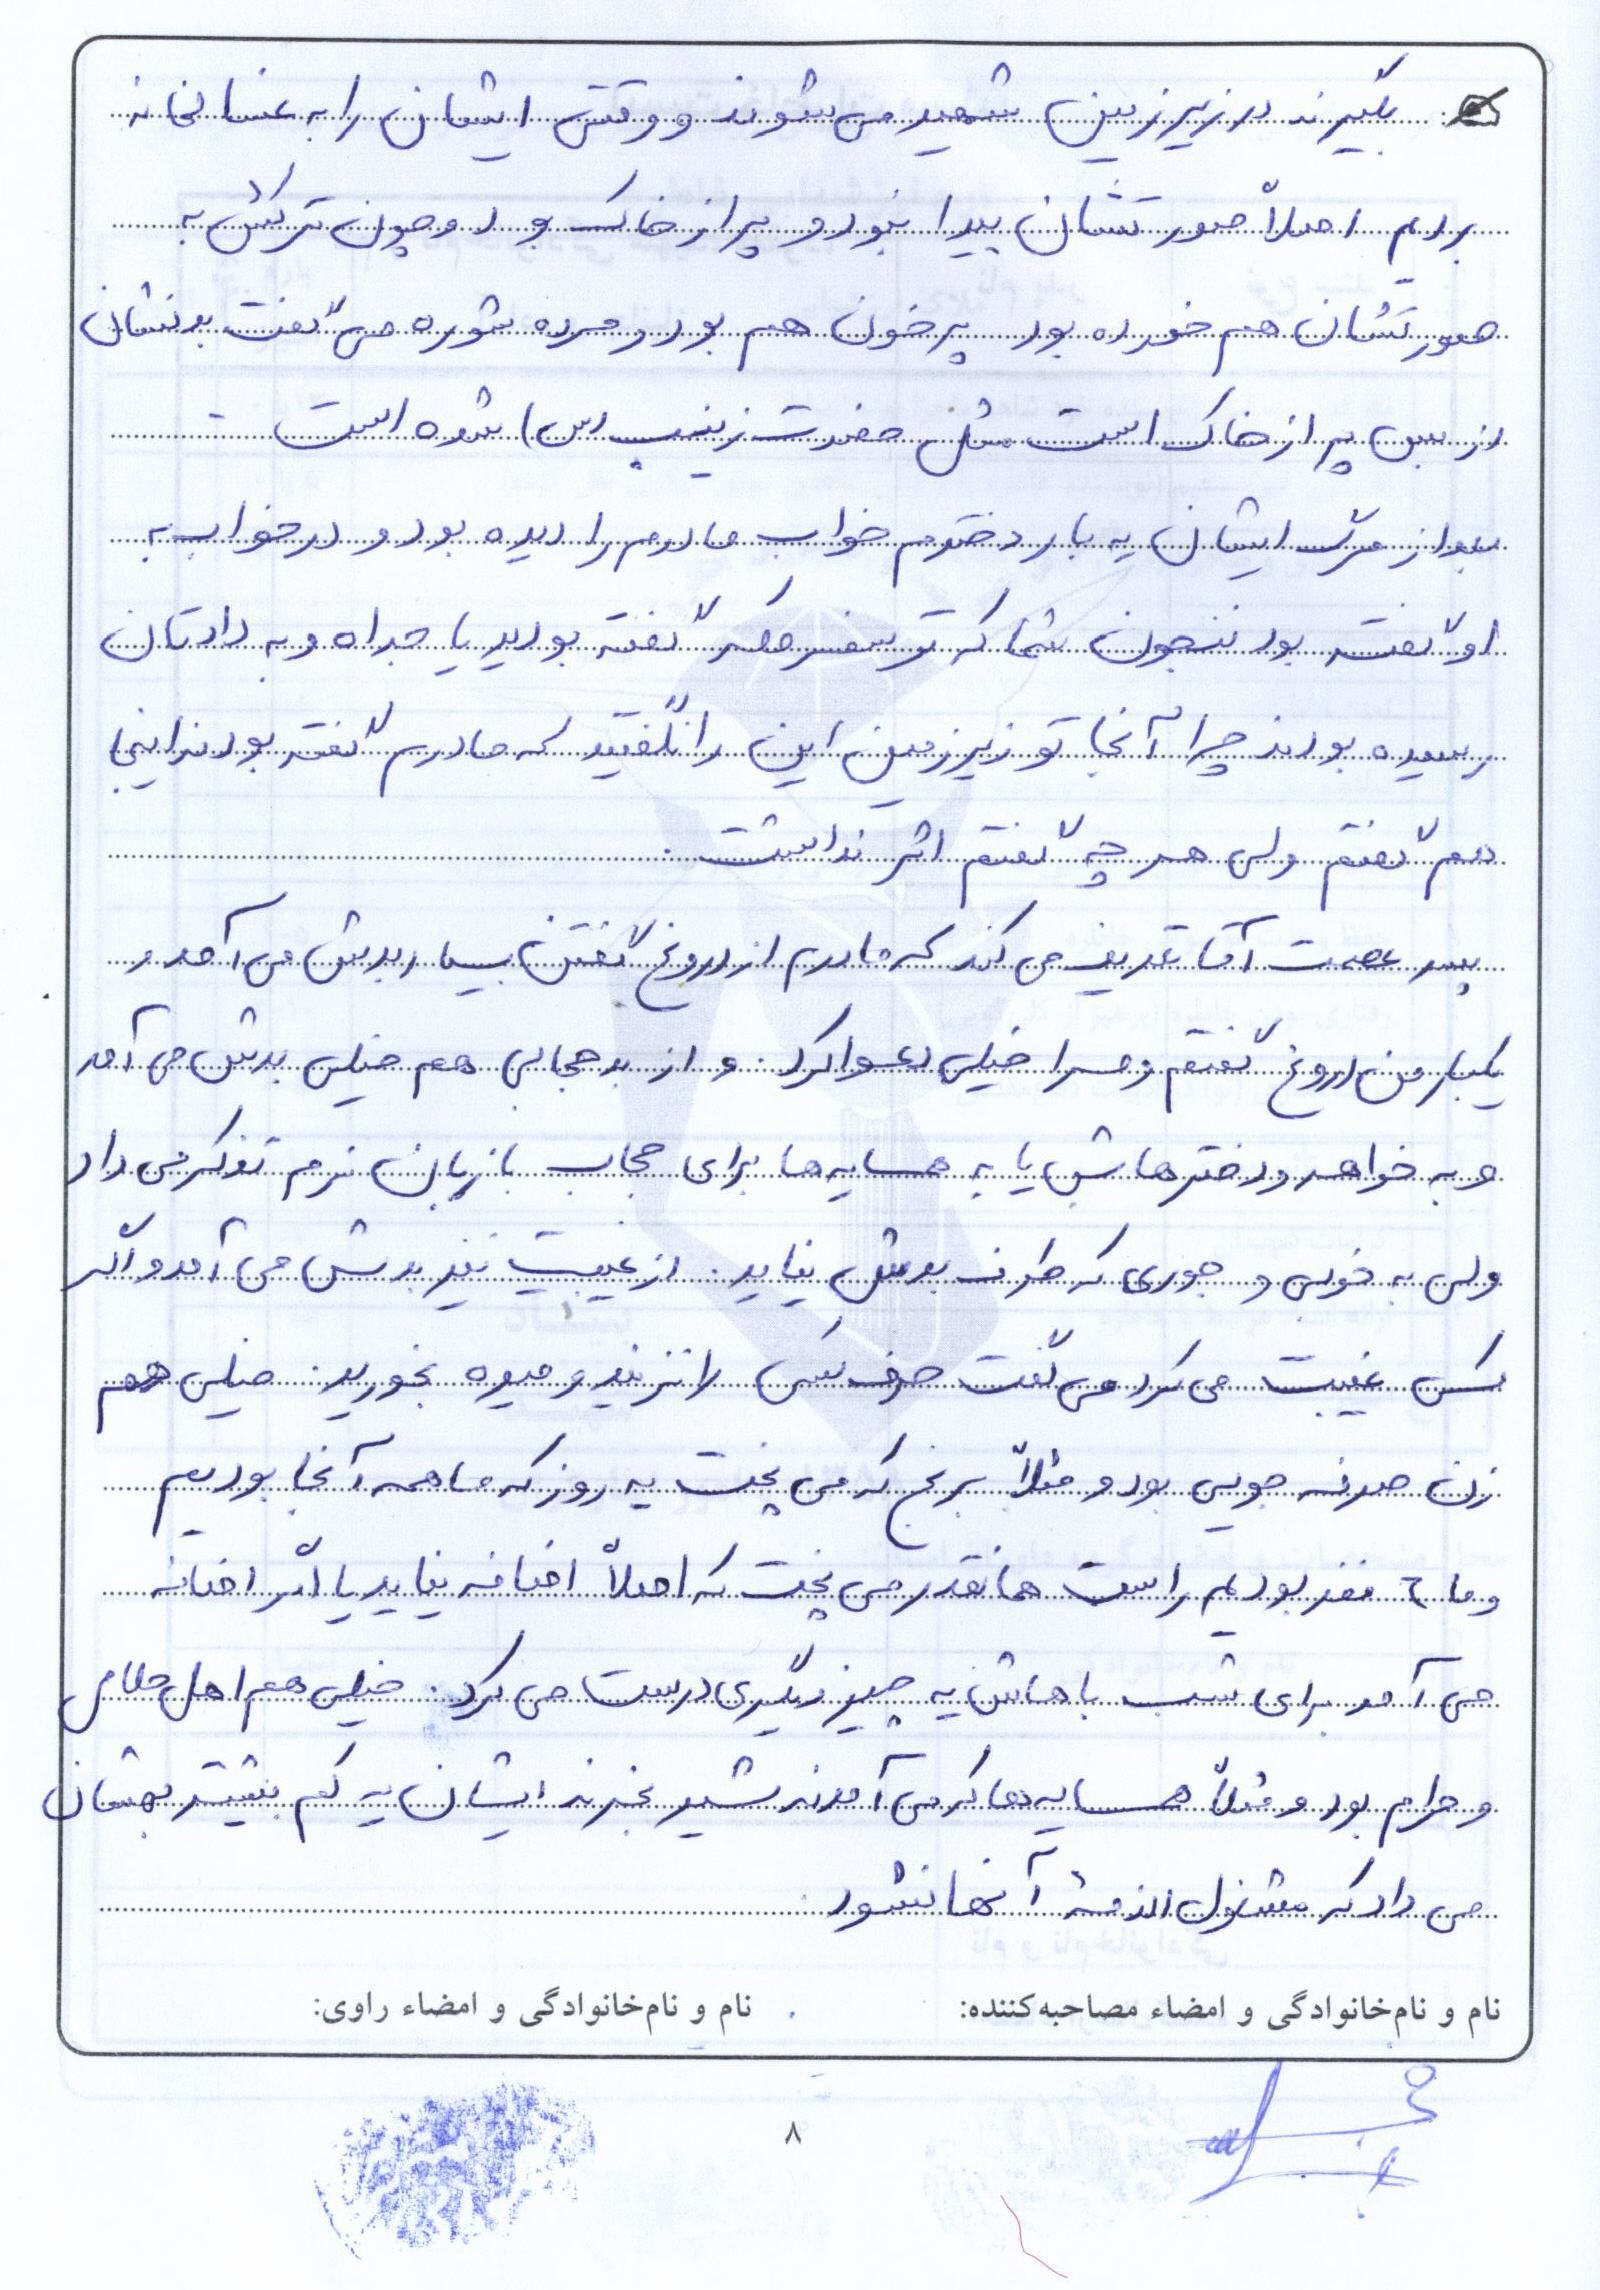 بگیرند در زیر زمین شهید می شوند و وقتی ایشان را به غسالخانه
بردیم اصلاً صورتشان پیدا نبود و پر از خاک بود و چون ترکش به
صورتشان هم خورده بود پر خون هم بود و مرده شوره می گفت بدنشان
از بس پر از خاک است مثل حضرت زینب (س) شده است
بعد از مرگ ایشان یه بار دخترم خواب مادرم را دیده بود و در خواب به
او گفته بود ننجون شما که تو سفر مکه گفته بودید یا جداه و به دادتان
رسیده بودند چرا آنجا تو زیرزمین این را نگفتید که مادرم گفته بودند اینجا
هم گفتم ولی هر چه گفتم اثر نداشت .
پسر عصمت آقا تعریف می کند که مادرم از دروغ گفتن بسیار بدش می آمد و
یکبار من دروغ گفتم و مرا خیلی دعوا کرد . و از بد حجابی هم خیلی بدش می آمد
و به خواهر و دخترهاش یا به همسایه ها برای حجاب با زبان نرم تذکر می داد
ولی به خوبی و جوری که طرف بدش نیاید . از غیبت نیز بدش می آمد و اگر
کسی غیبت می کرد می گفت حرف کسی را نزنید و میوه بخورید . خیلی هم
زن صرفه جویی بود و مثلاً برنج که می پخت یه روز که ما همه آنجا بودیم
و ما ۶ نفر بودیم راست همانقدر می پخت که اصلاً اضافه نیاید یا اگر اضافه
می آمد برای شب باهاش یه چیز دیگری درست می کرد . خیلی هم اهل حلال
و حرام بود و مثلاً همسایه ها که می آمدند شیر بخرند ایشان یه کم بیشتر بهشان
می داد که مشغول الذمه آنها نشود .
نام و نام‌خانوادگی و امضاء مصاحبه‌کننده: نام و نام‌خانوادگی و امضاء راوی:
۸